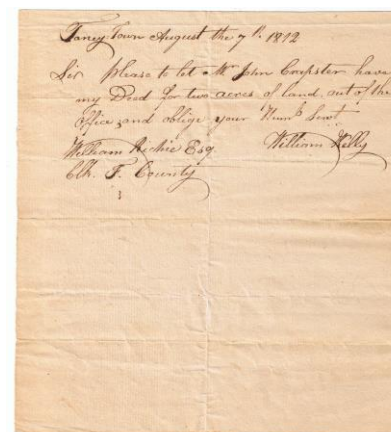 Taney Town August the 7th. 1812
Sir please to let Mr John Crapster have
my Deed for two acres of land, out of the
office and oblige your Humb Servt
William Richie Esq William Kelly
Clk. F. County